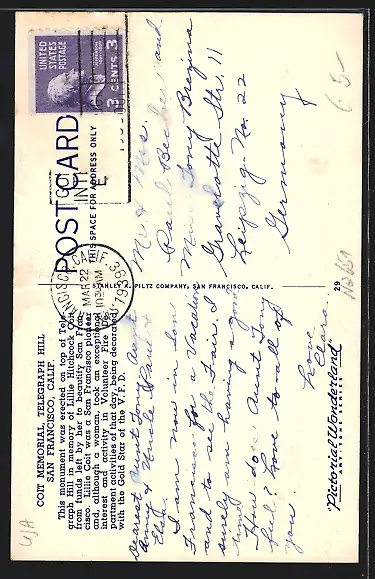 COIT MEMORIAL, TELEGRAPH HILL
SAN FRANCISCO, CALIF.
This monument was erected on top of Tele-
graph Hill in memory of Lillie Hitchcock Coit
from funds left by her to beautify San Fran-
cisco. Lillie Coit was a San Francisco pioneer
and, although a woman, took an exceptional
interest and activity in Volunteer Fire De-
partment activities of that day, being decorated
with the Gold Star of the V. F. D.
POST CARD
THIS SPACE FOR ADDRESS ONLY
UNITED
STATES
POSTAGE
3 CENTS 3
CALIF.
MAR 22
1939
Dearest Aunt Tony, Aunt
Anny & Uncle Paul &
Elsa.
I am now in San
Francisco for a Vacation
and to see the Fair. I
surely am having a good
time.
How do Aunt Tony
feel? Love to all of
you.
Love
Clara.
Mr & Mrs.
Paul Becher and
Miss Tony Brezina
Gravelotte Str. 11
Leipzig No. 22
Germany
STANLEY A. PILTZ COMPANY, SAN FRANCISCO, CALIF.
29
"Pictorial Wonderland"
ART TONE SERIES
USA